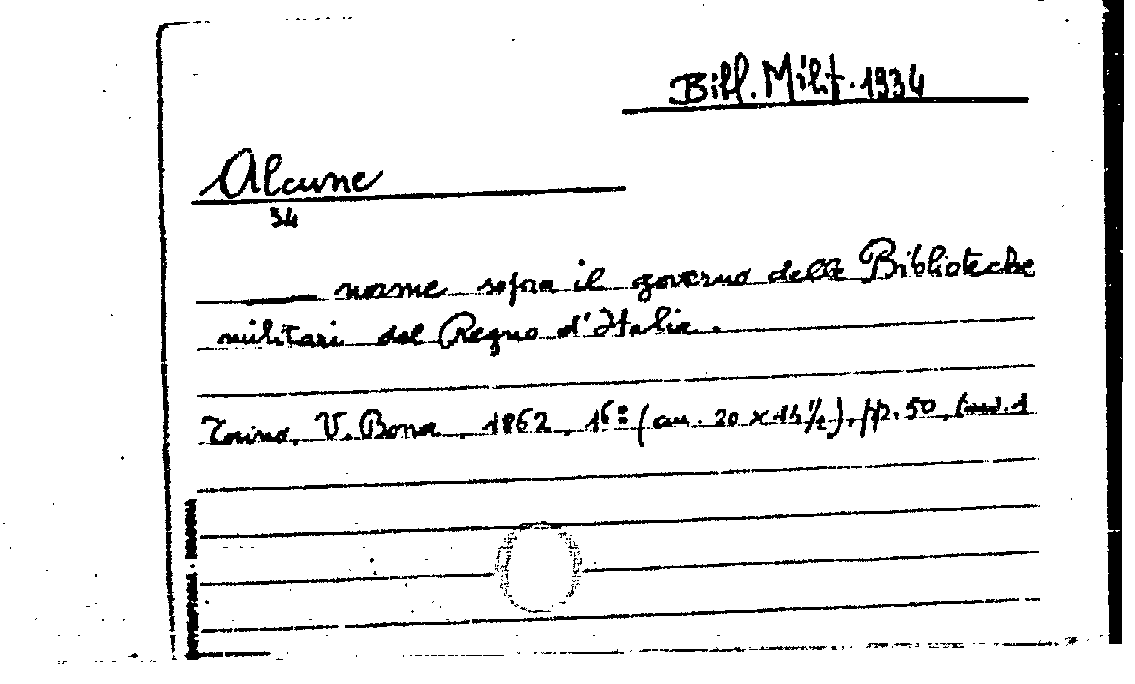 Bibl. Milit. 1934
Alcune
34
norme sopra il governo delle Biblioteche
militari del Regno d'Italia.
Torino, V. Bona, 1862, 16° (cm. 20 x 14 1/2), pp. 50, 1